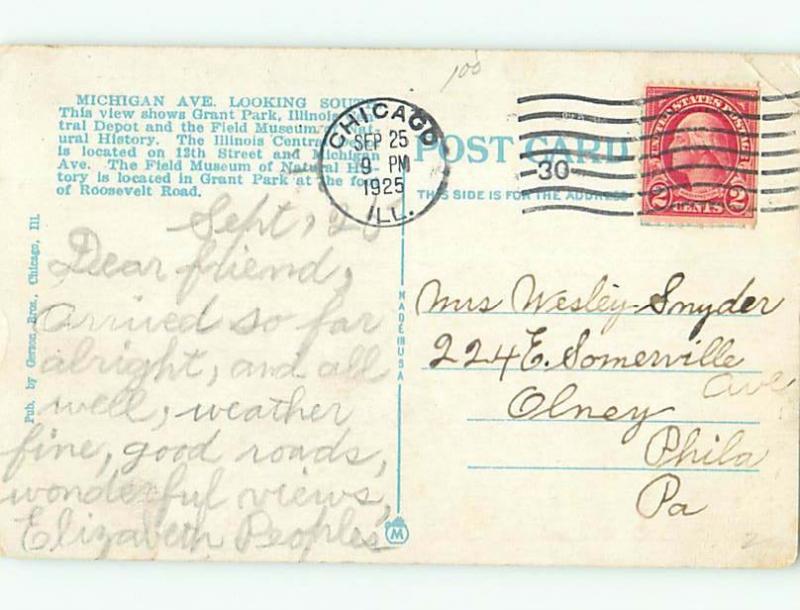 100
MICHIGAN AVE. LOOKING SOUTH
This view shows Grant Park, Illinois
tral Depot and the Field Museum Nat
ural History. The Illinois Central
is located on 12th Street and Michigan
Ave. The Field Museum of Natural His
tory is located in Grant Park at the foot
of Roosevelt Road.
CHICAGO
SEP 25
9 PM
1925
ILL.
POST CARD
THIS SIDE IS FOR THE ADDRESS
30
UNITED STATES POSTAGE
2 CENTS 2
Pub. by Gerson Bros., Chicago, Ill.
MADE IN USA
M
Sept, 25
Dear friend,
Arrived so far
alright, and all
well, weather
fine, good roads,
wonderful views,
Elizabeth Peoples
Mrs Wesley Snyder
224 E. Somerville
Ave
Olney
Phila
Pa